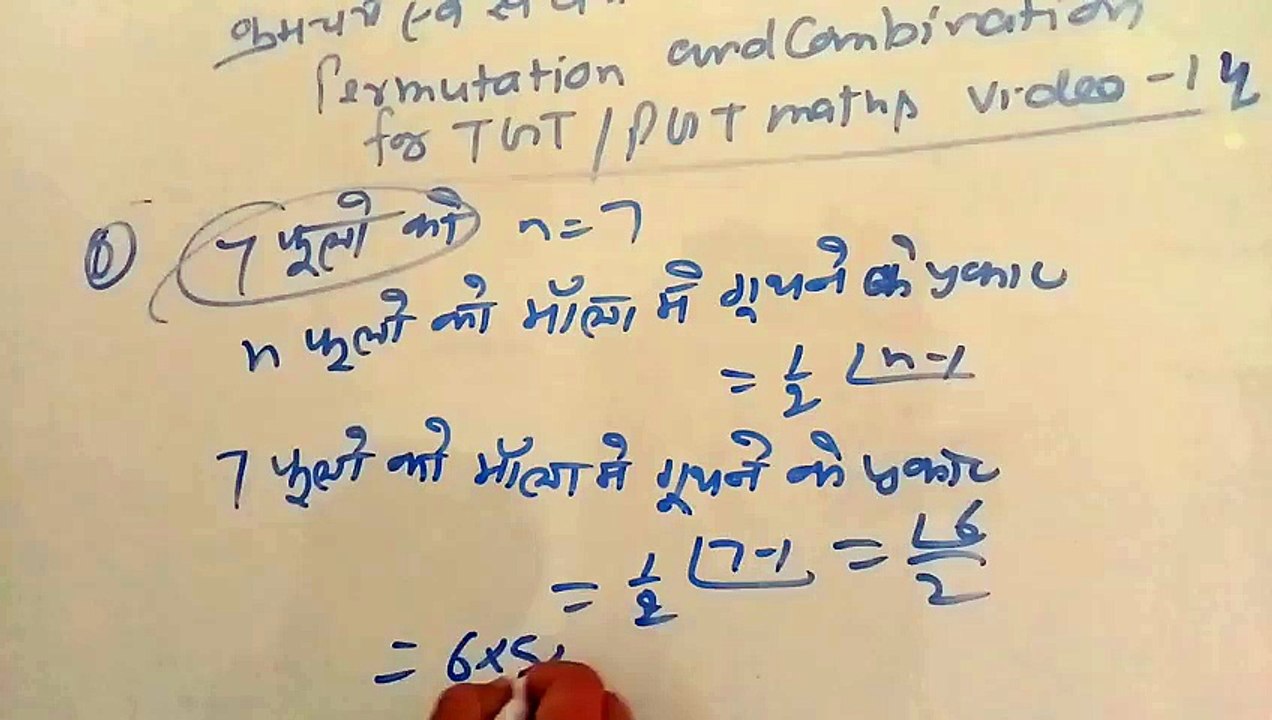 क्रमचय एवं संचय
Permutation and Combination
for TGT / PGT maths video - 14
⑥ 7 फूलों को n = 7
n फूलों को माँला में गूथने के प्रकार
= 1/2 ⌊n-1
7 फूलों को माँला में गूथने के प्रकार
= 1/2 ⌊7-1 = ⌊6/2
= 6×5